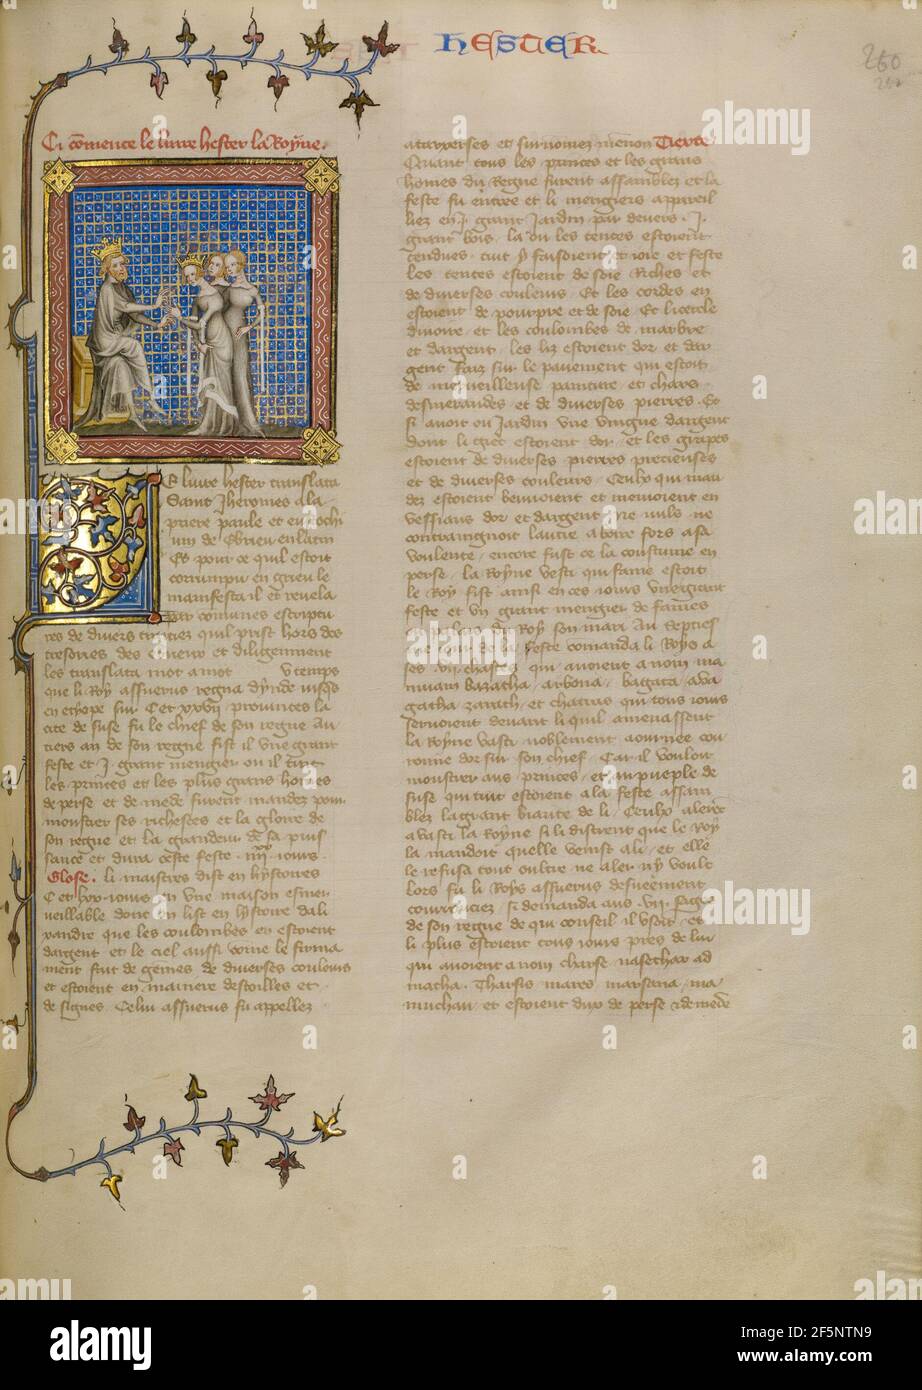 HESTER
260
Ci cōmence le liure hester la Royne.
Et liure hester translata
Saint Jheromes a la
priere paule et eustochi
um de Ebrieu en latin
Et pour ce quil estoit
corrumpu en grieu le
manifesta il et reuela
par comunes escriptu
res de diuers quil prist hors des
tresories des et diligenment
les translata mot a mot V temps
que li Roy assuerus regna dynde iusqs
en ethyope sur C et xxvij prouinces la
cite de suse fu le chief de son regne Au
tiers an de son regne fist il vne grant
feste et j. grant mengier ou il
les princes et les plus grans homes
de perse et de mede furent mandez pour
moustrer ses richesses et la gloire de
son regne et la grandeur de sa puis
sance et dura ceste feste iours
Glose. li maistres dist en hystoires
C et iours en vne maison esmer
ueillable dont en list en hystoire dali
xandre que les coulombes en estoient
dargent et le ciel aussi come le firma
ment fait de gemes de diuerses couleurs
et estoient en maniere destoilles et
de signes. Celui assuerus fu appellez
artaxerses et surnomez menon Tierte
Quant tous les princes et les grans
homes du Regne furent assamblez et la
feste fu entree et li mengiers appareil
liez en j. grant Jardin par deuers j.
grant bois. la ou les tentes estoient
tendues. tuit y faisoient et ioie et feste
les tentes estoient de soie Riches et
de diuerses couleurs. Et les cordes en
estoient de pourpre et de soie. Et li cercle
diuoire. et les coulombes de marbre
et dargent. les liz estoient dor et dar
gent faiz sur le pauement qui estoit
de merueilleuse painture. et chars
desmeraudes et de diuerses pierres. Et
si auoit ou Jardin vne vingne dargent
dont li estoient dor. et les grapes
estoient de diuerses pierres precieuses
et de diuerses couleurs. Ceulx qui man
dez estoient beuuoient et menioient en
vessiaus dor et dargent. ne nuls ne
contraingnoit lautre a boire fors a sa
voulente. encore fust ce la coustume en
perse. la Royne vesti qui fame estoit
le Roy fist ainsi en ces iours vn grant
feste et vn grant mengier de fames
Roy son mari Au septies
me iour de la feste comanda li Roys a
ses vij. qui auoient a nom ma
muam bazatha. arbona. bagata. aba
gatha zarath. et charas qui tous iours
seruoient deuant li quil amenassent
la Royne vasti noblement aournee cou
ronne dor sur son chief. Car il vouloit
moustrer aus princes. et au pueple de
suse qui tuit estoient a la feste assam
blez la grant biaute de li. Ceulx alerēt
a vasti la Royne si li distrent que le Roy
la mandoit quelle venist a li. et elle
le refusa tout oultre ne aler ny voult
lors fu li Roys assuerus
courrouciez. si demanda aus vij. sages
de son regne de qui conseil il vsoit. et
li plus estoient tous iours pres de lui
qui auoient a nom charse nasechar ad
matha. Tharsis mares marsana. ma
muchan. et estoient dux de perse & de mede
alamy
Image ID: 2F5NTN9
www.alamy.com